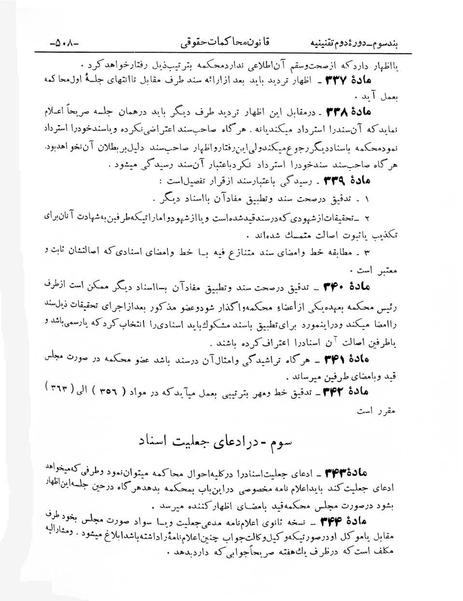 بندسوم-دورهٔ دوم تقنینیه قانون محاکمات حقوقی -۵۰۸-
یا اظهار دارد که از صحت و سقم آن اطلاعی ندارد محکمه بترتیب ذیل رفتار خواهد کرد.
مادهٔ ۳۳۷ ـ اظهار تردید باید بعد از ارائه سند طرف مقابل تا انتهای جلسهٔ اول محاکمه
بعمل آید.
مادهٔ ۳۳۸ ـ در مقابل این اظهار تردید طرف دیگر باید در همان جلسه صریحاً اعلام
نماید که آن سند را استرداد میکند یا نه. هرگاه صاحب سند اعتراضی نکرده و یا سند خود را استرداد
نمود محکمه با سناد دیگر رجوع میکند ولی این رفتار و اظهار صاحب سند دلیل بر بطلان آن نخواهد بود.
هرگاه صاحب سند سند خود را استرداد نکرد باعتبار آن سند رسیدگی میشود.
مادهٔ ۳۳۹ ـ رسیدگی باعتبار سند از قرار تفصیل است:
۱ ـ تدقیق در صحت سند و تطبیق مفاد آن با اسناد دیگر.
۲ ـ تحقیقات از شهودی که در سند قید شده است و یا از شهود و اماراتیکه طرفین بشهادت آنان برای
تکذیب یا ثبوت اصالت متمسک شده‌اند.
۳ ـ مطابقه خط و امضای سند متنازع فیه با خط و امضای اسنادی که اصالتشان ثابت و
معتبر است.
مادهٔ ۳۴۰ ـ تدقیق در صحت سند و تطبیق مفاد آن با اسناد دیگر ممکن است از طرف
رئیس محکمه بعهده یکی از اعضاء محکمه واگذار شود و عضو مذکور بعد از اجرای تحقیقات ذیل سند
را امضا میکند و در اینمورد برای تطبیق با سند مشکوک باید اسنادی را انتخاب کرد که یا رسمی باشد و
یا طرفین اصالت آن اسناد را اعتراف کرده باشند.
مادهٔ ۳۴۱ ـ هرگاه تراشیدگی و امثال آن در سند باشد عضو محکمه در صورت مجلس
قید و بامضای طرفین میرساند.
مادهٔ ۳۴۲ ـ تدقیق خط و مهر بترتیبی بعمل میآید که در مواد (۳۵۶) الی (۳۶۳)
مقرر است
سوم - در ادعای جعلیت اسناد
مادهٔ ۳۴۳ ـ ادعای جعلیت اسناد را در کلیه احوال محاکمه میتوان نمود و طرفی که میخواهد
ادعای جعلیت کند باید اعلام نامه مخصوصی در این باب بمحکمه بدهد هرگاه در حین جلسه این اظهار
بشود در صورت مجلس محکمه قید بامضای اظهار کننده میرسد.
مادهٔ ۳۴۴ ـ نسخه ثانوی اعلام نامه مدعی جعلیت و یا سواد صورت مجلس بخود طرف
مقابل یا موکل او در صورتیکه وکیل وکالت جواب چنین اعلام نامهٔ را داشته باشد ابلاغ میشود. و مشارالیه
مکلف است که در ظرف یک هفته صریحاً جوابی که دارد بدهد.